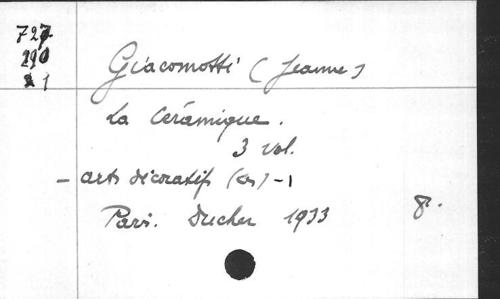 727
290
1
Giacomotti (Jeanne)
La Céramique.
3 vol.
- arts décoratifs (les) -1
Paris. Ducher 1933
8°.